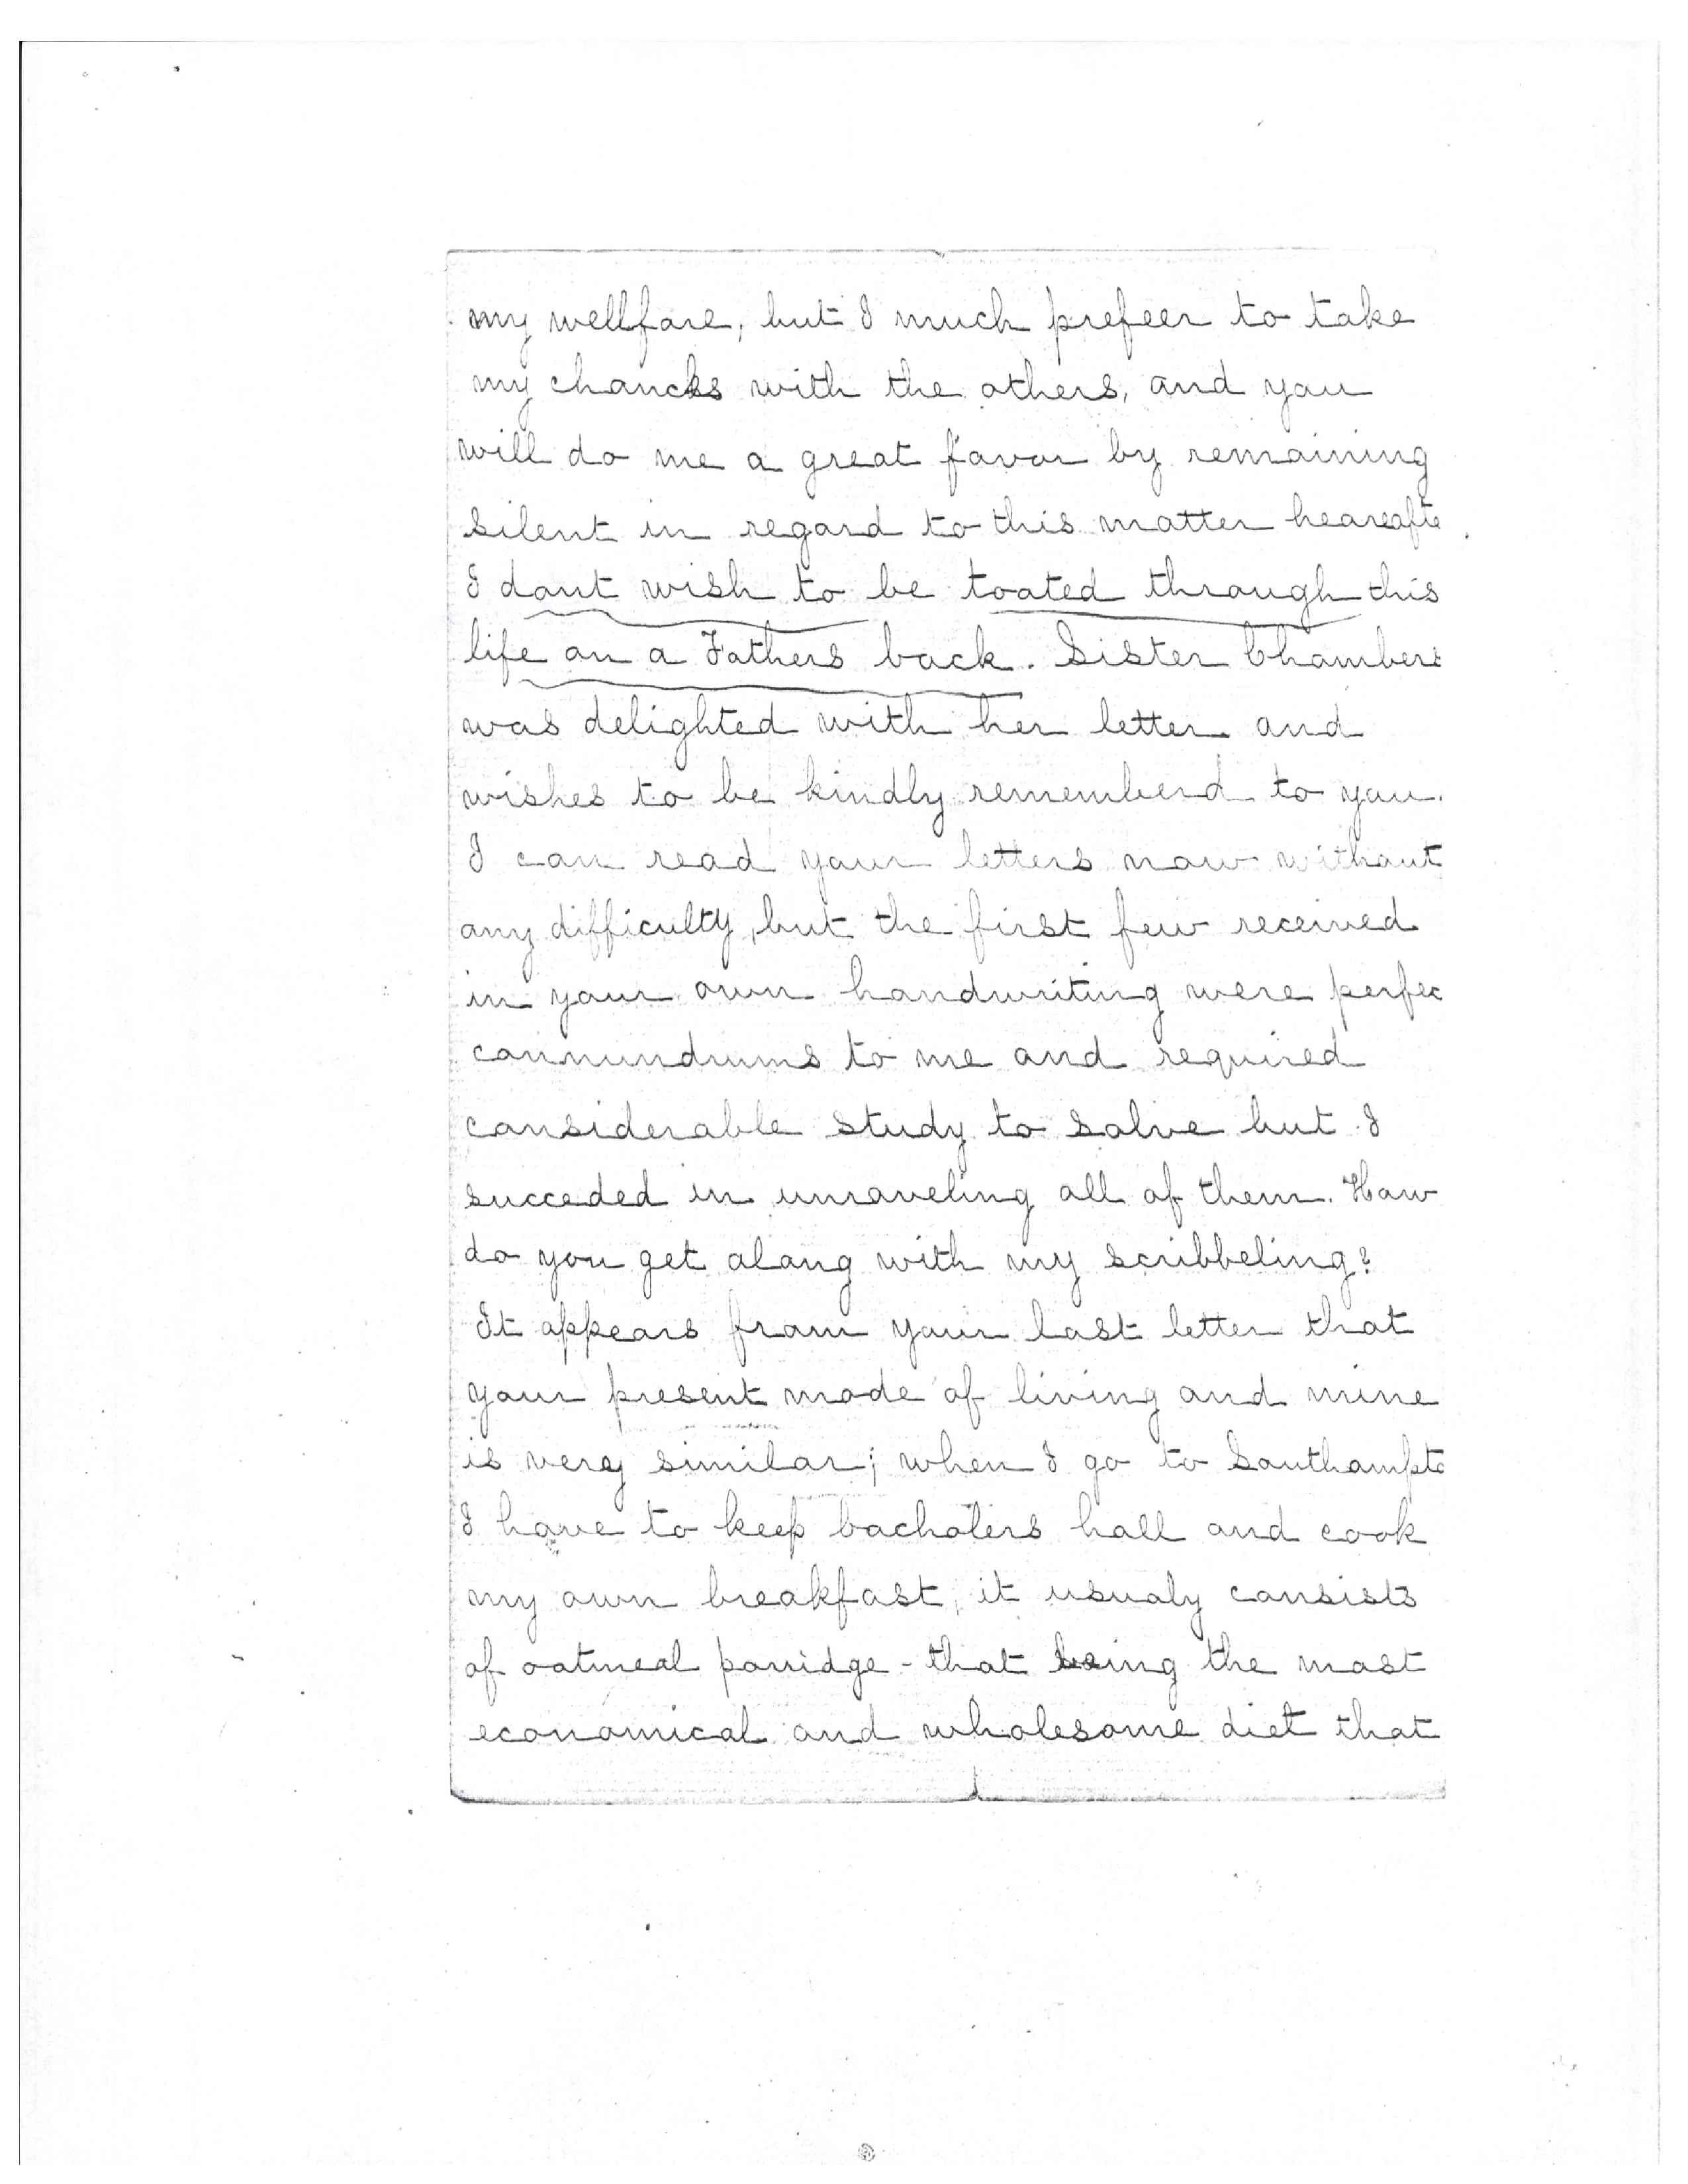 my wellfare, but I much prefeer to take
my chancks with the others, and you
will do me a great favor by remaining
silent in regard to this matter heareafte
I dont wish to be toated through this
life on a Fathers back. Sister Chambers
was delighted with her letter and
wishes to be kindly rememberd to you.
I can read your letters now without
any difficulty, but the first few received
in your own handwriting were perfec
connundrums to me and required
considerable study to solve but I
succeded in unraveling all of them. How
do you get along with my scribbeling?
It appears from your last letter that
your present mode of living and mine
is very similar; when I go to Southampto
I have to keep bacholers hall and cook
my own breakfast, it usualy consists
of oatmeal porridge - that being the most
economical and wholesome diet that